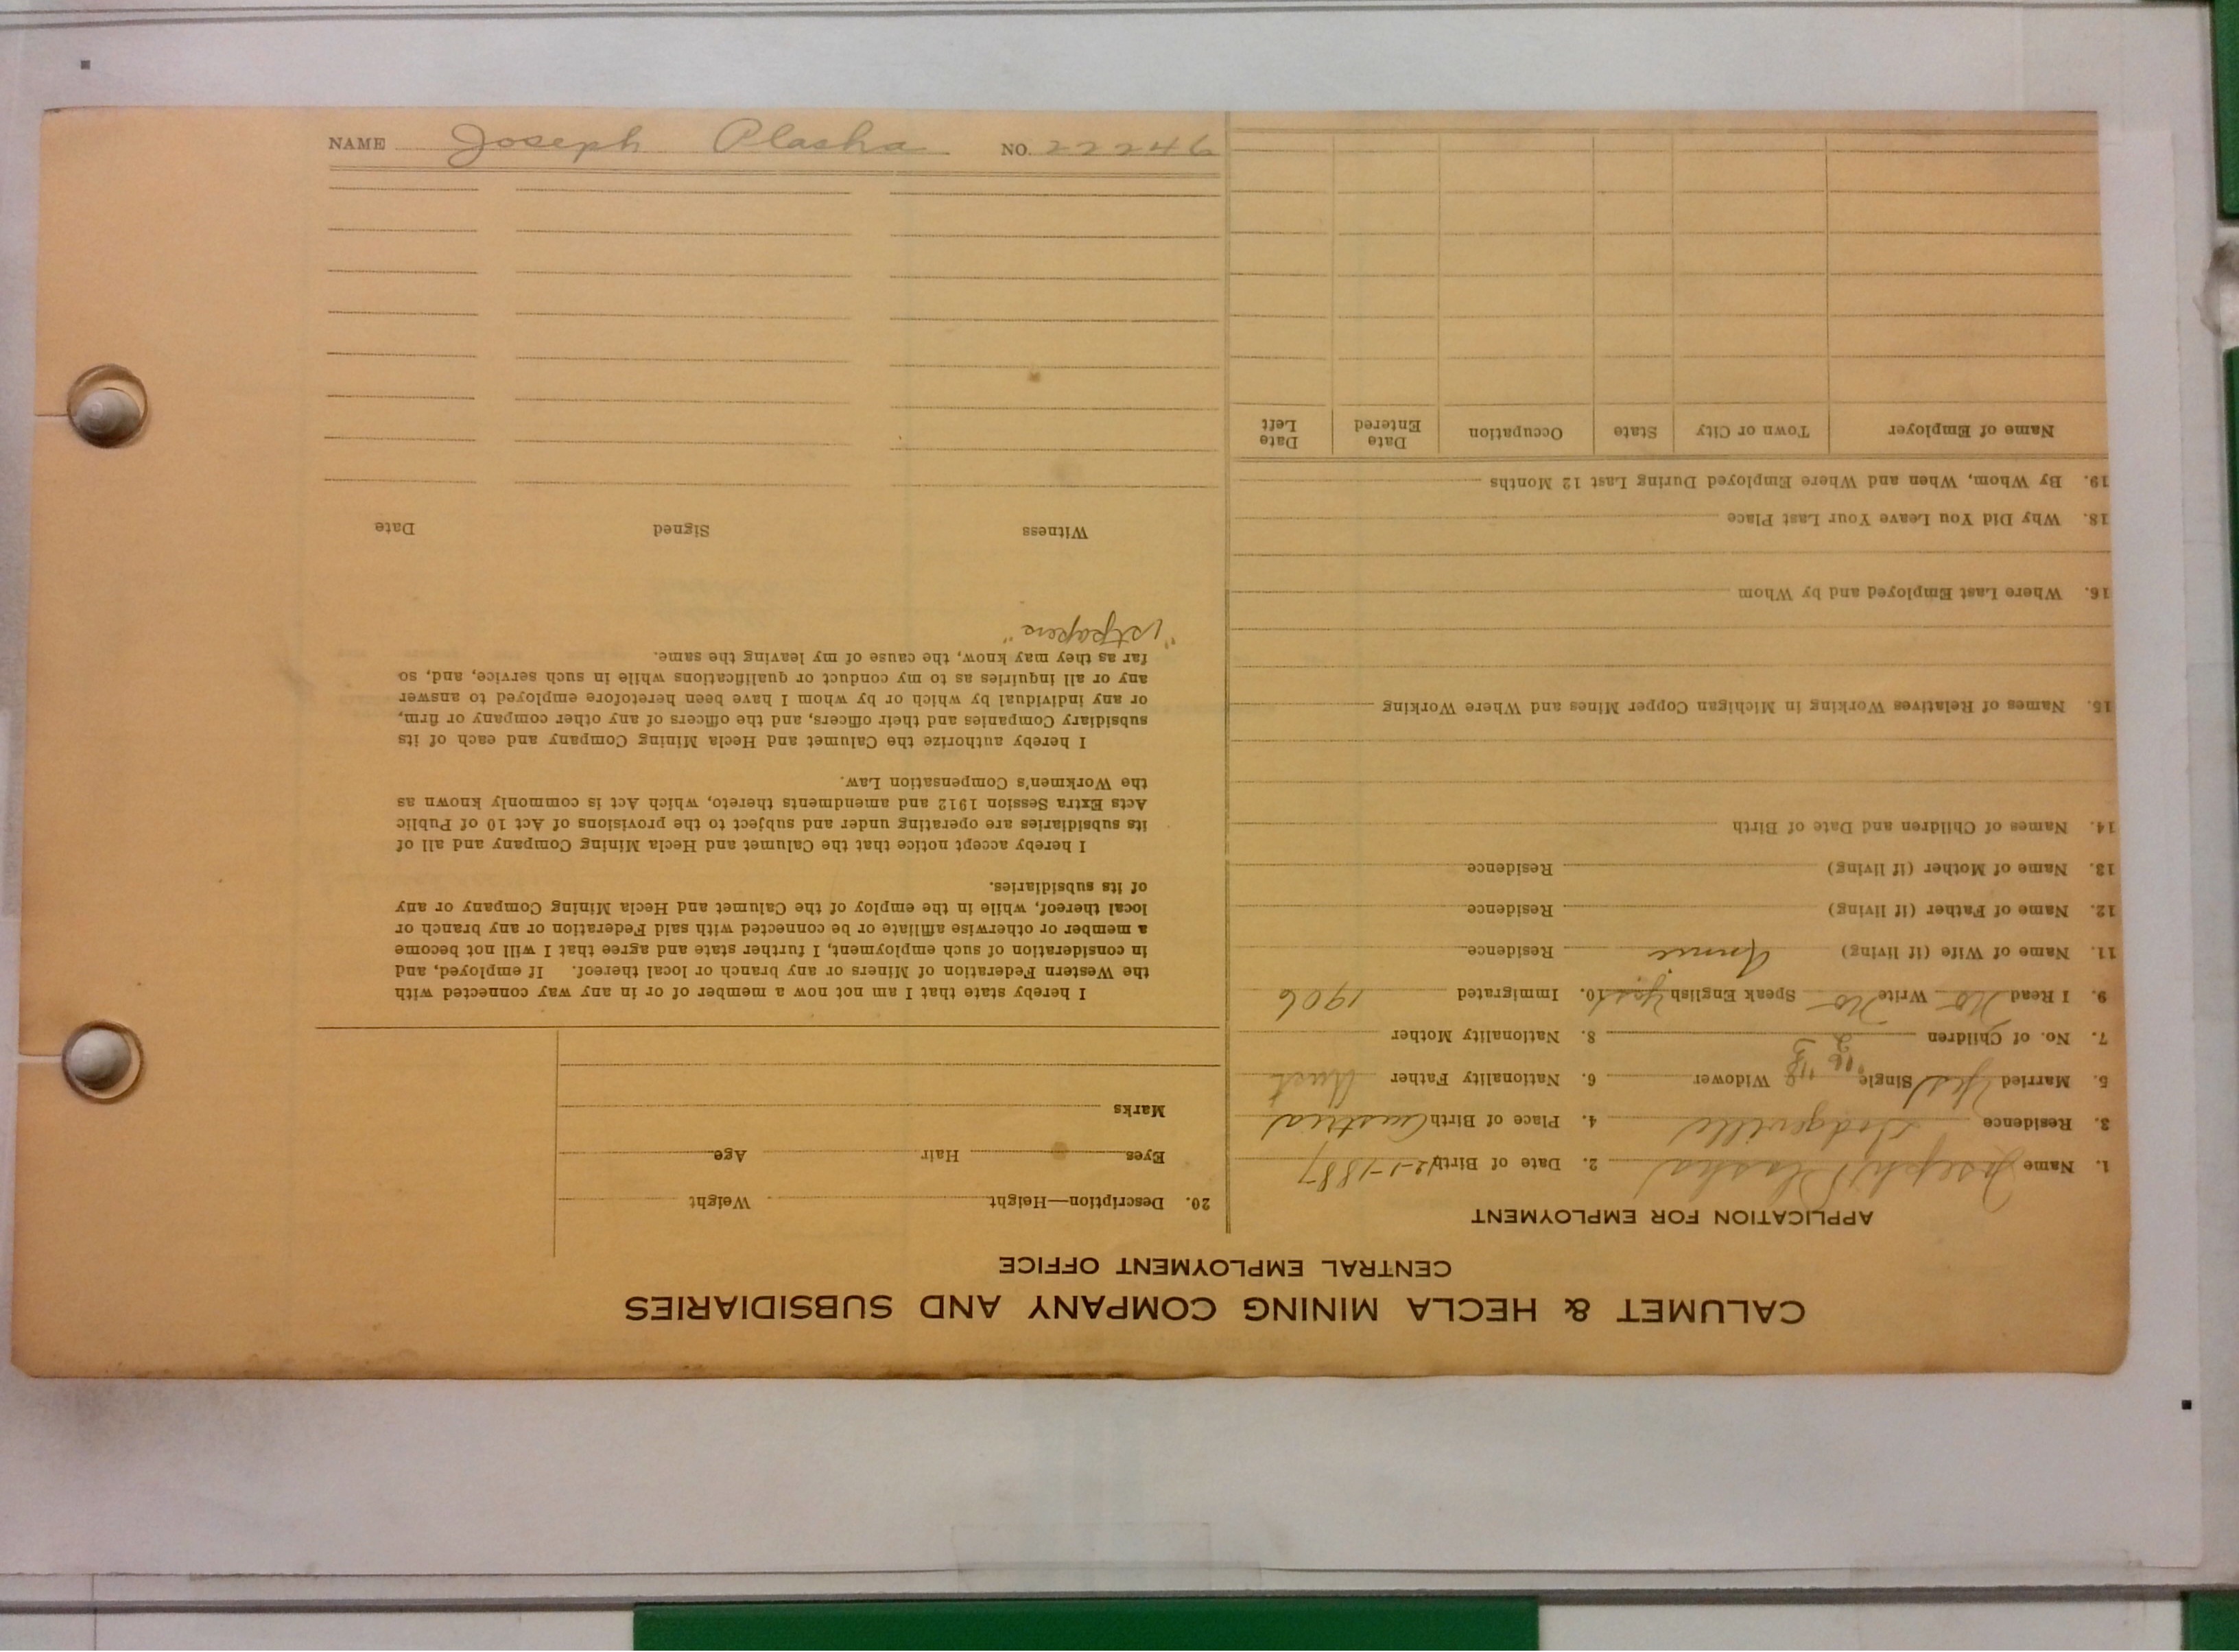 NAME Joseph Plasha NO. 22246
CALUMET & HECLA MINING COMPANY AND SUBSIDIARIES
CENTRAL EMPLOYMENT OFFICE
APPLICATION FOR EMPLOYMENT
1. Name Joseph Plasha 2. Date of Birth 12-1-1887
3. Residence Dodgeville 4. Place of Birth Austria
5. Married Yes Single Widower 6. Nationality Father Aust
7. No. of Children 2 8. Nationality Mother
9. I Read No Write No Speak English Yes 10. Immigrated 1906
11. Name of Wife (if living) Annie Residence
12. Name of Father (if living) Residence
13. Name of Mother (if living) Residence
14. Names of Children and Date of Birth
15. Names of Relatives Working in Michigan Copper Mines and Where Working
16. Where Last Employed and by Whom
18. Why Did You Leave Your Last Place
19. By Whom, When and Where Employed During Last 12 Months
Name of Employer Town or City State Occupation Date Entered Date Left
20. Description—Height Weight
Eyes Hair Age
Marks
I hereby state that I am not now a member of or in any way connected with
the Western Federation of Miners or any branch or local thereof. If employed, and
in consideration of such employment, I further state and agree that I will not become
a member or otherwise affiliate or be connected with said Federation or any branch or
local thereof, while in the employ of the Calumet and Hecla Mining Company or any
of its subsidiaries.
I hereby accept notice that the Calumet and Hecla Mining Company and all of
its subsidiaries are operating under and subject to the provisions of Act 10 of Public
Acts Extra Session 1912 and amendments thereto, which Act is commonly known as
the Workmen's Compensation Law.
I hereby authorize the Calumet and Hecla Mining Company and each of its
subsidiary Companies and their officers, and the officers of any other company or firm,
or any individual by which or by whom I have been heretofore employed to answer
any or all inquiries as to my conduct or qualifications while in such service, and, so
far as they may know, the cause of my leaving the same.
"1st papers"
Witness Signed Date